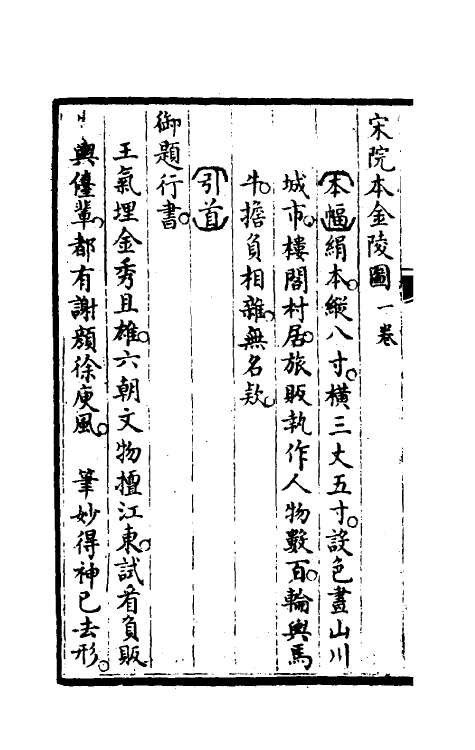 宋院本金陵圖一卷
〔本幅〕絹本。縱八寸。橫三丈五寸。設色畫山川
城市。樓閣村居。旅販執作人物數百。輪輿馬
牛。擔負相雜。無名款。
〔引首〕
御題行書。
王氣埋金秀且雄。六朝文物擅江東。試看負販
輿儓輩。都有謝顏徐庾風。　筆妙得神已去形。